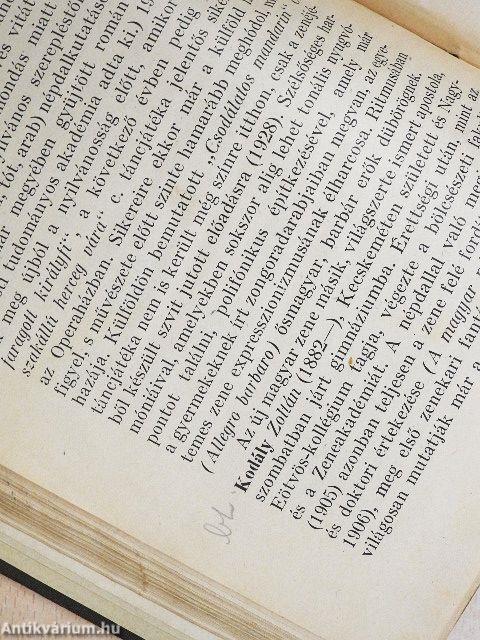 és vitát
mondás miatt
nyilvános szerepléstől,
tót, arab) népdalkutatásai-
megyében gyüjtött román
tudományos akadémia adta ki.) 19
még ujból a nyilvánosság előtt, amikor
faragott királyfi", a következő évben pedig
szakállú herceg vára" c. táncjátéka jelentős siker
az Operaházban. Sikerere ekkor már a külföld is
figyel, s művészete előtt szinte hamarább megtódul, m
hazája. Külföldön bemutatott „Csodálatos mandarin" c.
táncjátéka nem is került még szinre itthon, csak a zenéjé-
ből készült szvit jutott előadásra (1928). Szélsőséges har-
móniáival, amelyekben sokszor alig lehet tonális nyugvó-
pontot találni, polifónikus építkezésével, amely már
a gyermekeknek irt zongoradarabjaiban megvan, az egye-
temes zene expresszionizmusának élharcosa. Ritmusaiban
(Allegro barbaro) ősmagyar, barbár erők dübörögnek
Az új magyar zene másik, világszerte ismert apostola,
Kodály Zoltán (1882—), Kecskeméten született és Nagy-
szombatban járt gimnáziumba. Érettségi után, mint az
Eötvös-kollégium tagja, végezte a bölcsészeti
és a Zeneakadémiát. A népdallal való
(1905) azonban teljesen a zene felé
és doktori értekezése (A magyar
1906), meg első zenekari
világosan mutatják már a
Antikvárium.hu